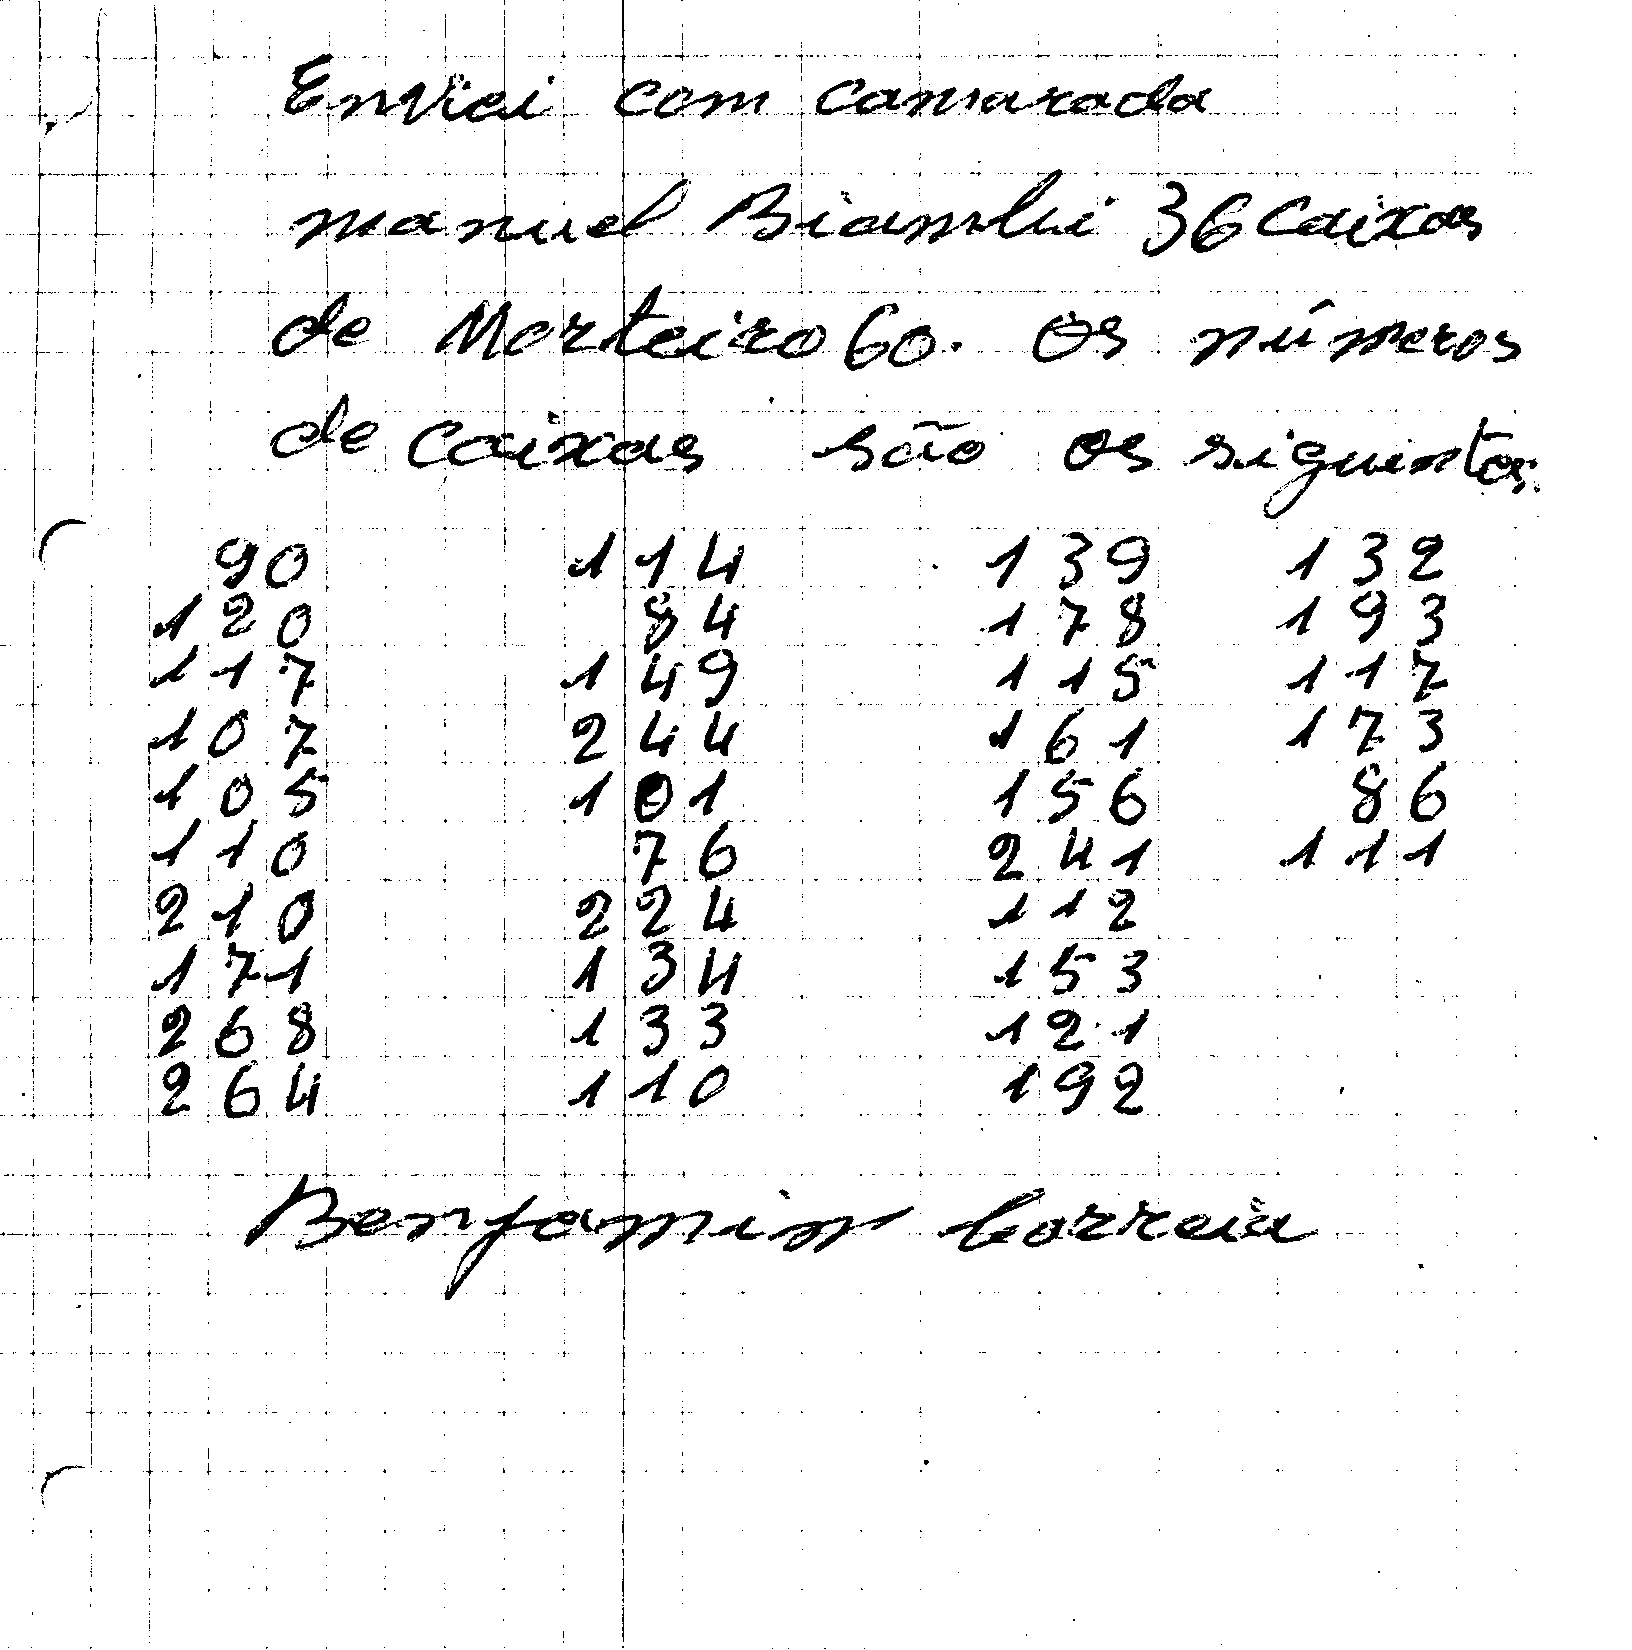 Enviei com camarada
manuel Biamlui 36 Caixas
de Morteiro 60. Os números
de caixas são os siguintes.
90 114 139 132
120 84 178 193
117 149 115 117
107 244 161 173
105 101 156 86
110 76 241 111
210 224 112
171 134 153
268 133 121
264 110 192
Benjamin Correia